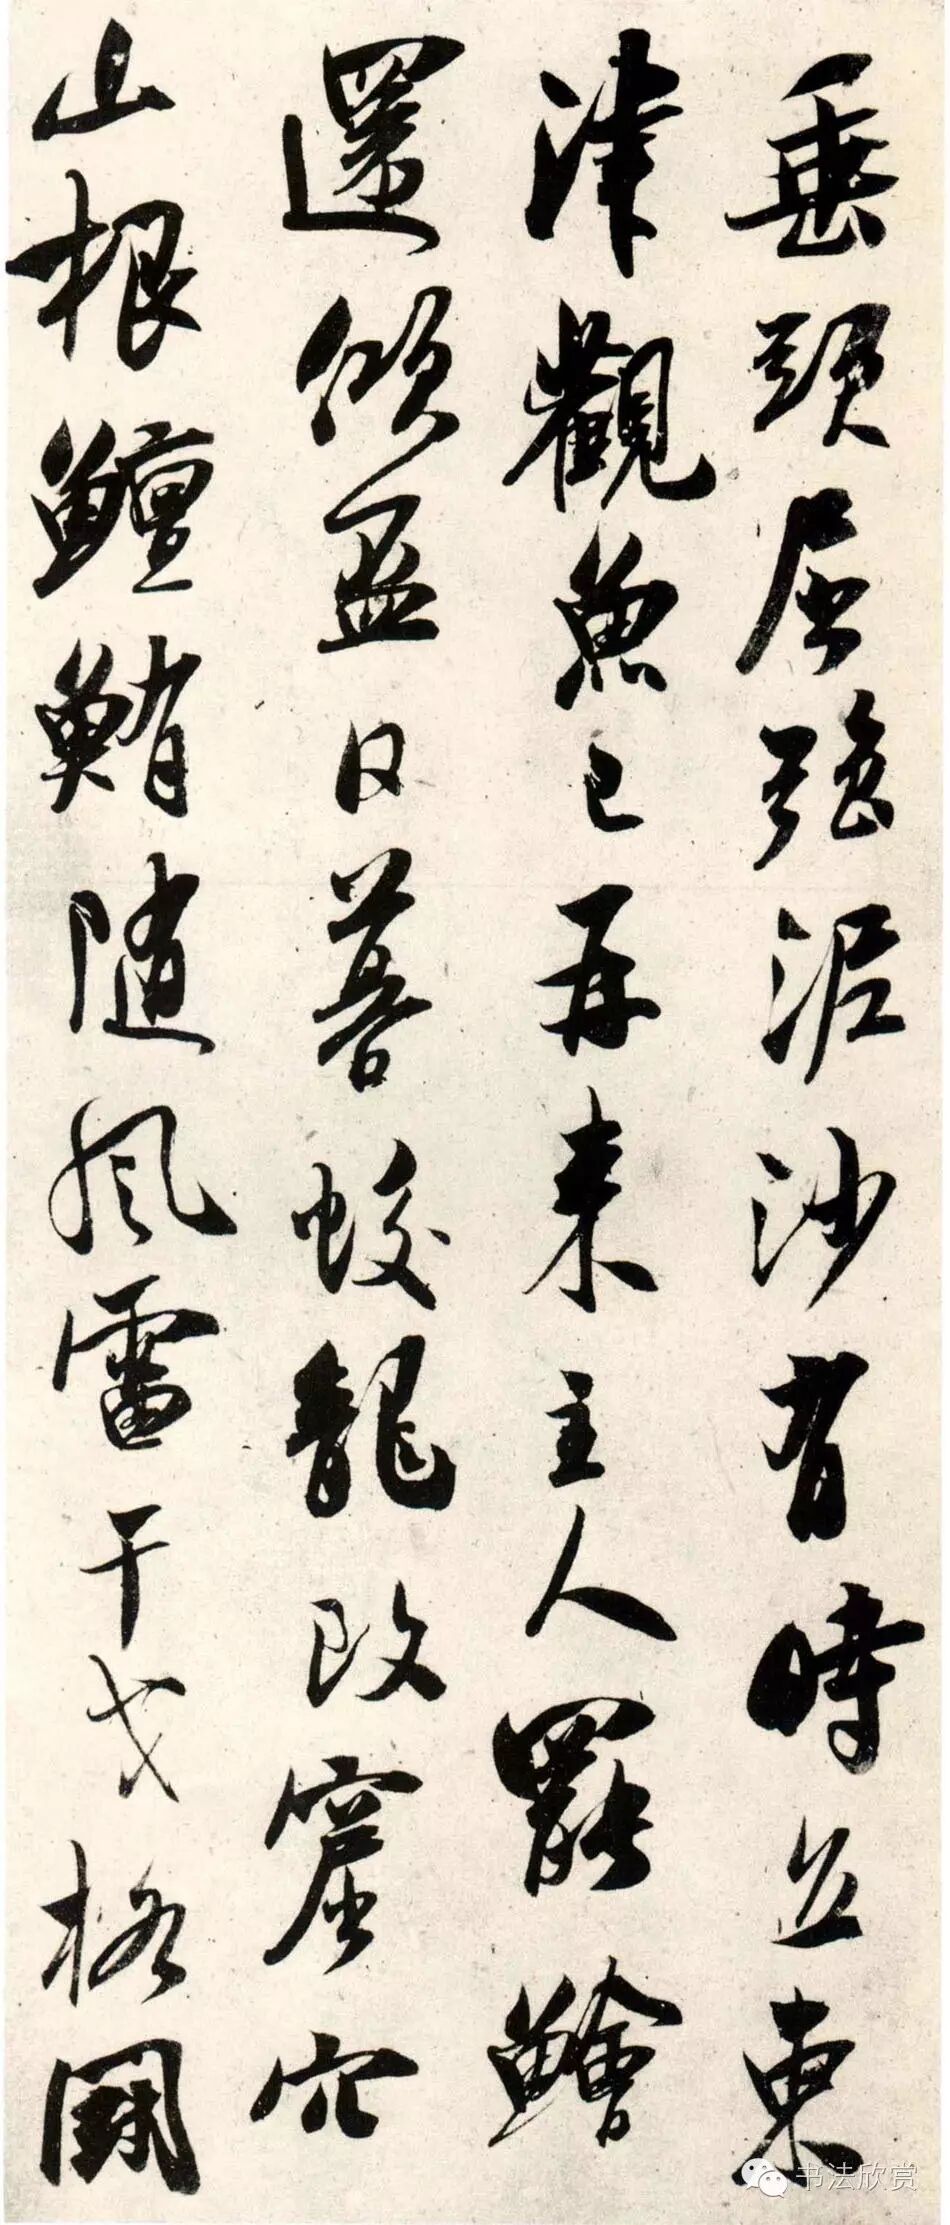 垂頭屈強泥沙有時立東
津觀魚已再來主人罷鱠
還傾盃日暮蛟龍改窟穴
山根鱣鮪隨風雷干戈格鬪
书法欣赏